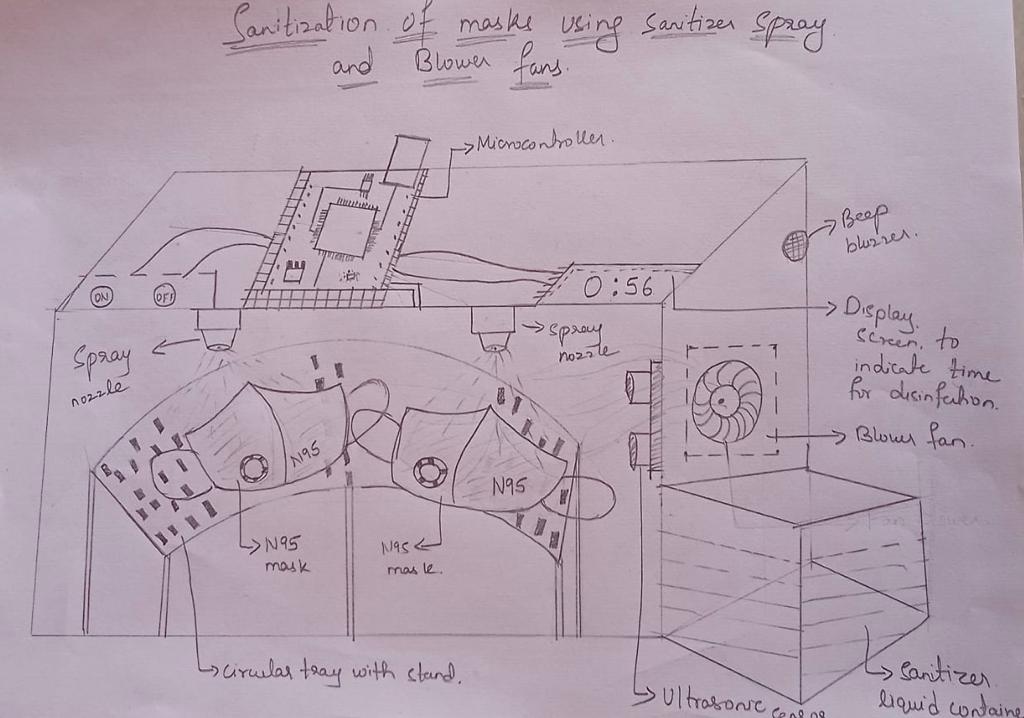 Sanitization of masks using sanitizer spray
and Blower fans.
Microcontroller.
Beep
buzzer.
ON
OFF
0:56
Display
screen. to
indicate time
for disinfection.
Spray
nozzle
Spray
nozzle
N95
N95
Blower fan.
N95
mask
N95
mask.
Circular tray with stand.
Ultrasonic
Sanitizer
liquid containe